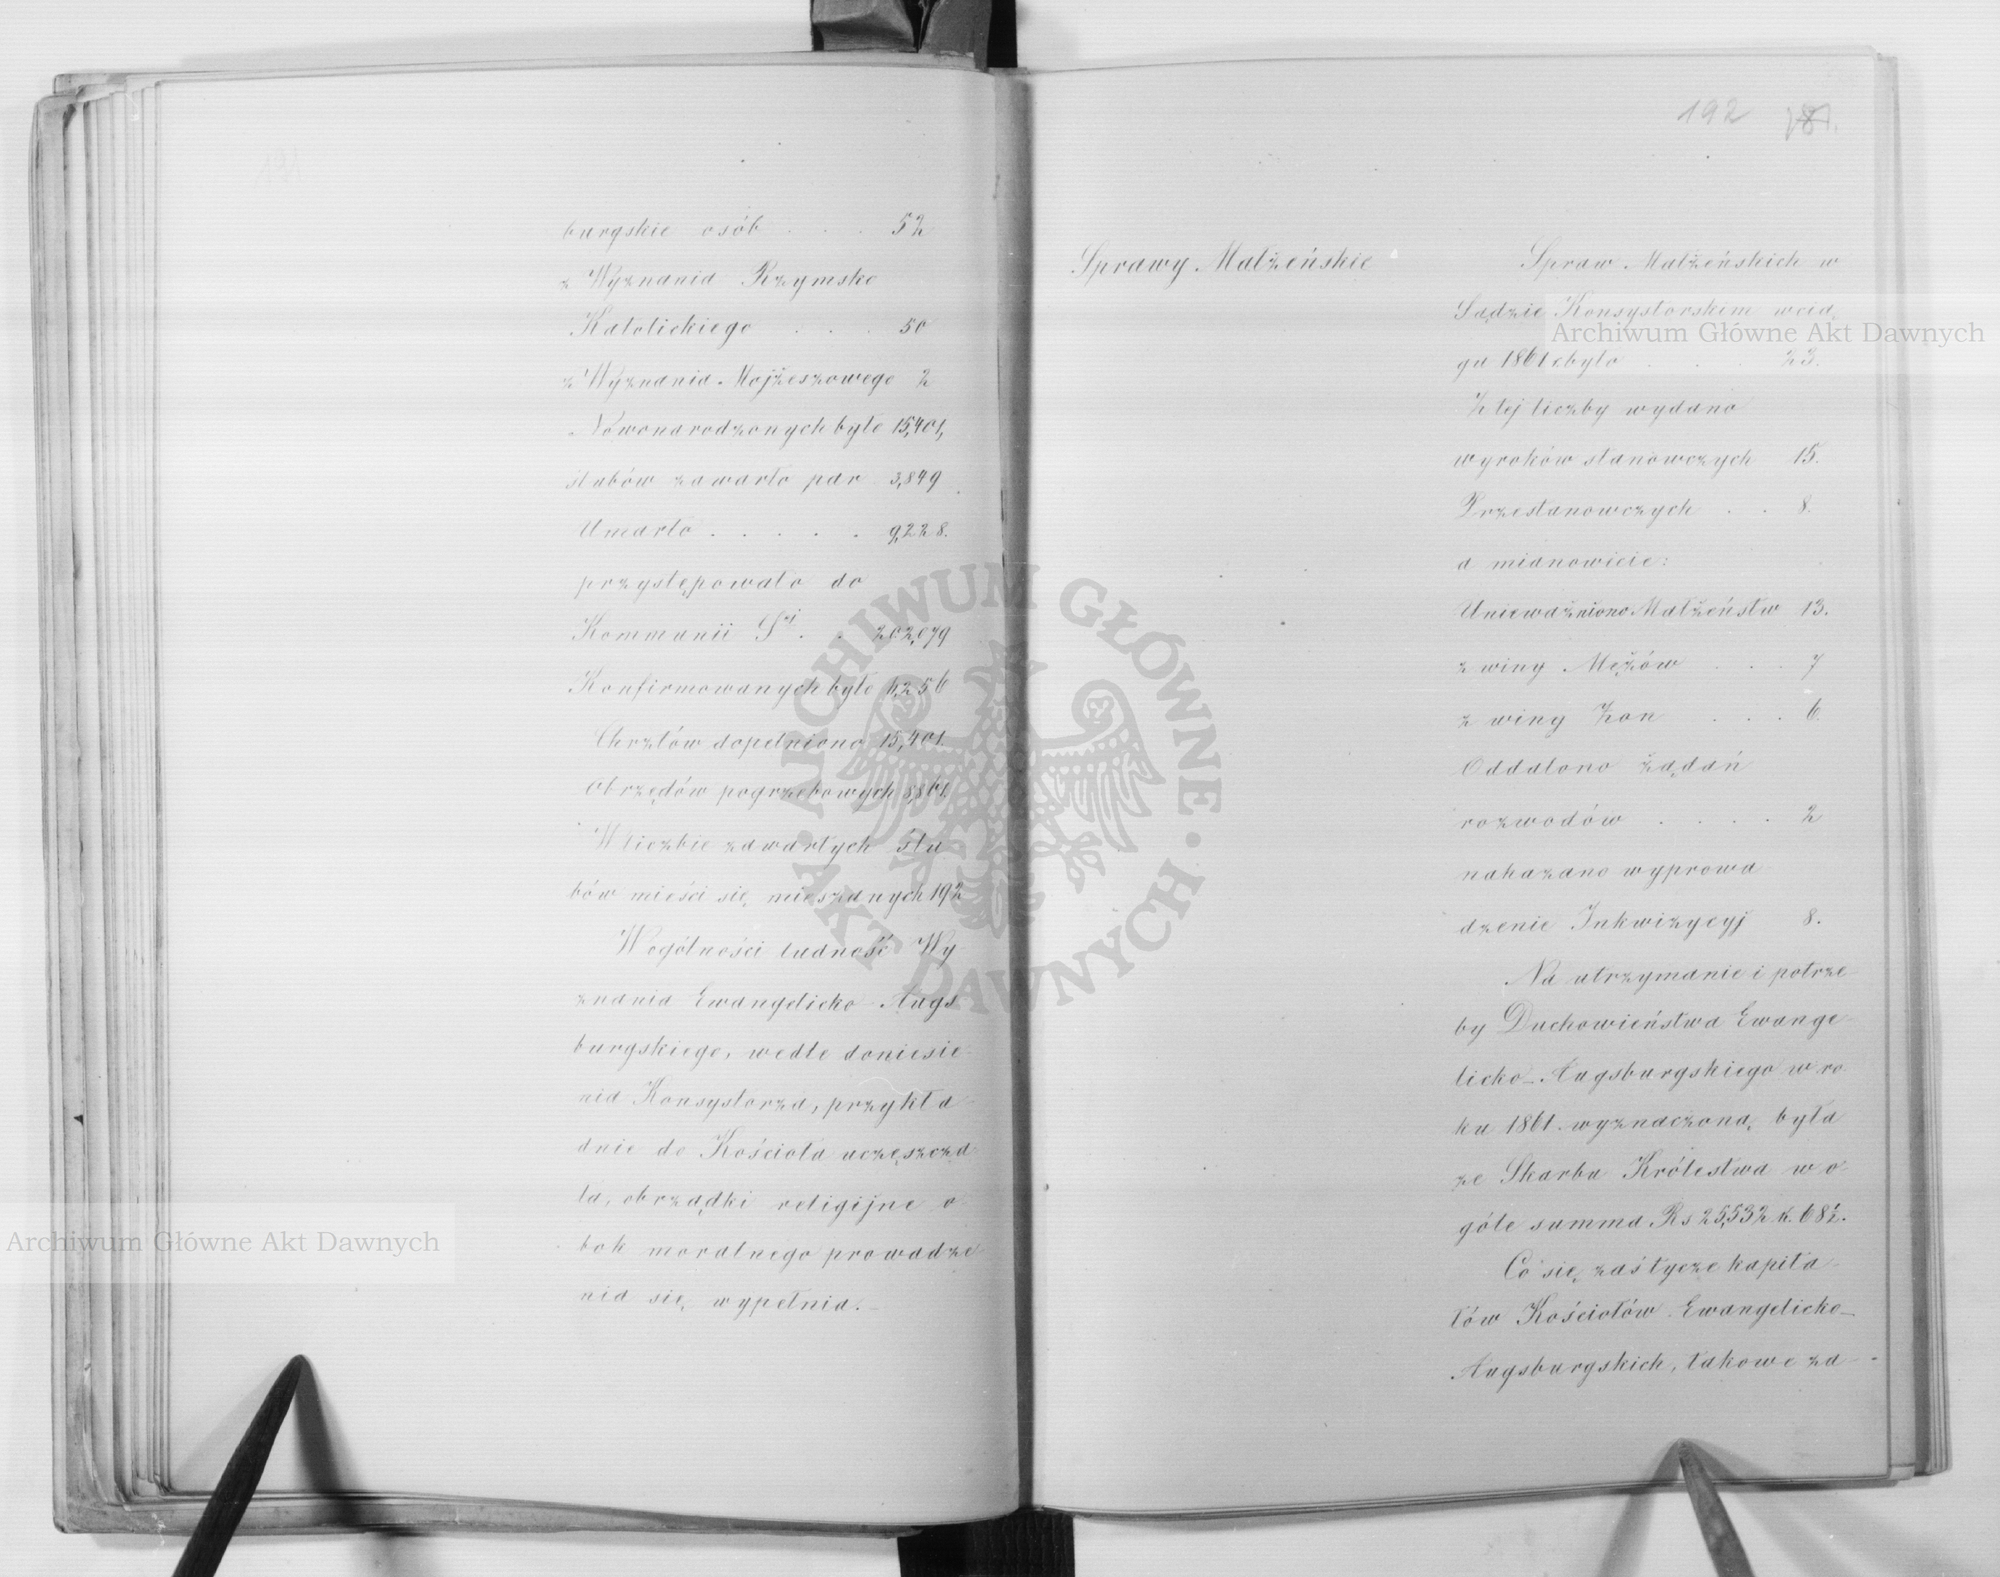 burgskie osób . . . 52
z Wyznania Rzymsko
Katolickiego . . . 50
z Wyznania Mojżeszowego 2
Nowonarodzonych było 15,401,
ślubów zawarło par 3,849
Umarło . . . . . 9,228.
przystępowało do
Kommunii Sej. . 202,079
Konfirmowanych było 6,256
Chrztów dopełniono 15,401.
Obrzędów pogrzebowych 8,861.
W liczbie zawartych ślu
bów mieści się mieszanych 192
Wogólności ludność Wy
znania Ewangelicko-Augs
burgskiego, wedle doniesie
nia Konsystorza, przykła
dnie do Kościoła uczęszcza
ła, obrządki religijne o
bok moralnego prowadze
nia się wypełnia.
192 181.
Sprawy Małżeńskie
Spraw Małżeńskich w
Sądzie Konsystorskim wcią
gu 1861 było . . . 23.
Z tej liczby wydano
wyroków stanowczych 15.
Przestanowczych . . 8.
a mianowicie:
Unieważniono Małżeństw 13.
z winy Mężów . . . 7
z winy Żon . . . 6.
Oddalono żądań
rozwodów . . . . 2
nakazano wyprowa
dzenie Inkwizycyj 8.
Na utrzymanie i potrze
by Duchowieństwa Ewange
licko-Augsburgskiego w ro
ku 1861 wyznaczoną była
ze Skarbu Królestwa w o
góle summa Rs 25,532 k. 68½.
Co się zaś tycze kapita
łów Kościołów Ewangelicko-
Augsburgskich, takowe za-
Archiwum Główne Akt Dawnych
Archiwum Główne Akt Dawnych
ARCHIWUM GŁÓWNE
AKT DAWNYCH